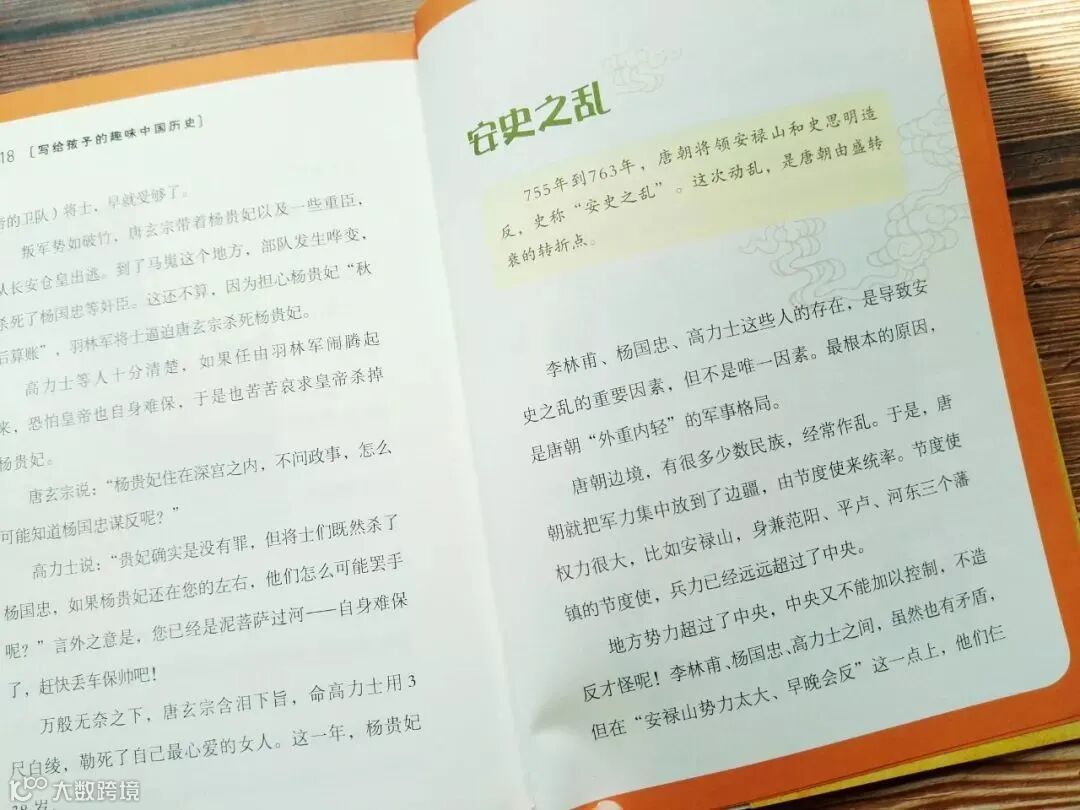 18 [写给孩子的趣味中国历史]
的卫队）将士，早就受够了。
叛军势如破竹，唐玄宗带着杨贵妃以及一些重臣，
从长安仓皇出逃。到了马嵬这个地方，部队发生哗变，
杀死了杨国忠等奸臣。这还不算，因为担心杨贵妃“秋
后算账”，羽林军将士逼迫唐玄宗杀死杨贵妃。
高力士等人十分清楚，如果任由羽林军闹腾起
来，恐怕皇帝也自身难保，于是也苦苦哀求皇帝杀掉
杨贵妃。
唐玄宗说：“杨贵妃住在深宫之内，不问政事，怎么
可能知道杨国忠谋反呢？”
高力士说：“贵妃确实是没有罪，但将士们既然杀了
杨国忠，如果杨贵妃还在您的左右，他们怎么可能罢手
呢？”言外之意是，您已经是泥菩萨过河——自身难保
了，赶快丢车保帅吧！
万般无奈之下，唐玄宗含泪下旨，命高力士用3
尺白绫，勒死了自己最心爱的女人。这一年，杨贵妃
38岁。
安史之乱
755年到763年，唐朝将领安禄山和史思明造
反，史称“安史之乱”。这次动乱，是唐朝由盛转
衰的转折点。
李林甫、杨国忠、高力士这些人的存在，是导致安
史之乱的重要因素，但不是唯一因素。最根本的原因，
是唐朝“外重内轻”的军事格局。
唐朝边境，有很多少数民族，经常作乱。于是，唐
朝就把军力集中放到了边疆，由节度使来统率。节度使
权力很大，比如安禄山，身兼范阳、平卢、河东三个藩
镇的节度使，兵力已经远远超过了中央。
地方势力超过了中央，中央又不能加以控制，不造
反才怪呢！李林甫、杨国忠、高力士之间，虽然也有矛盾，
但在“安禄山势力太大、早晚会反”这一点上，他们仨
大数跨境